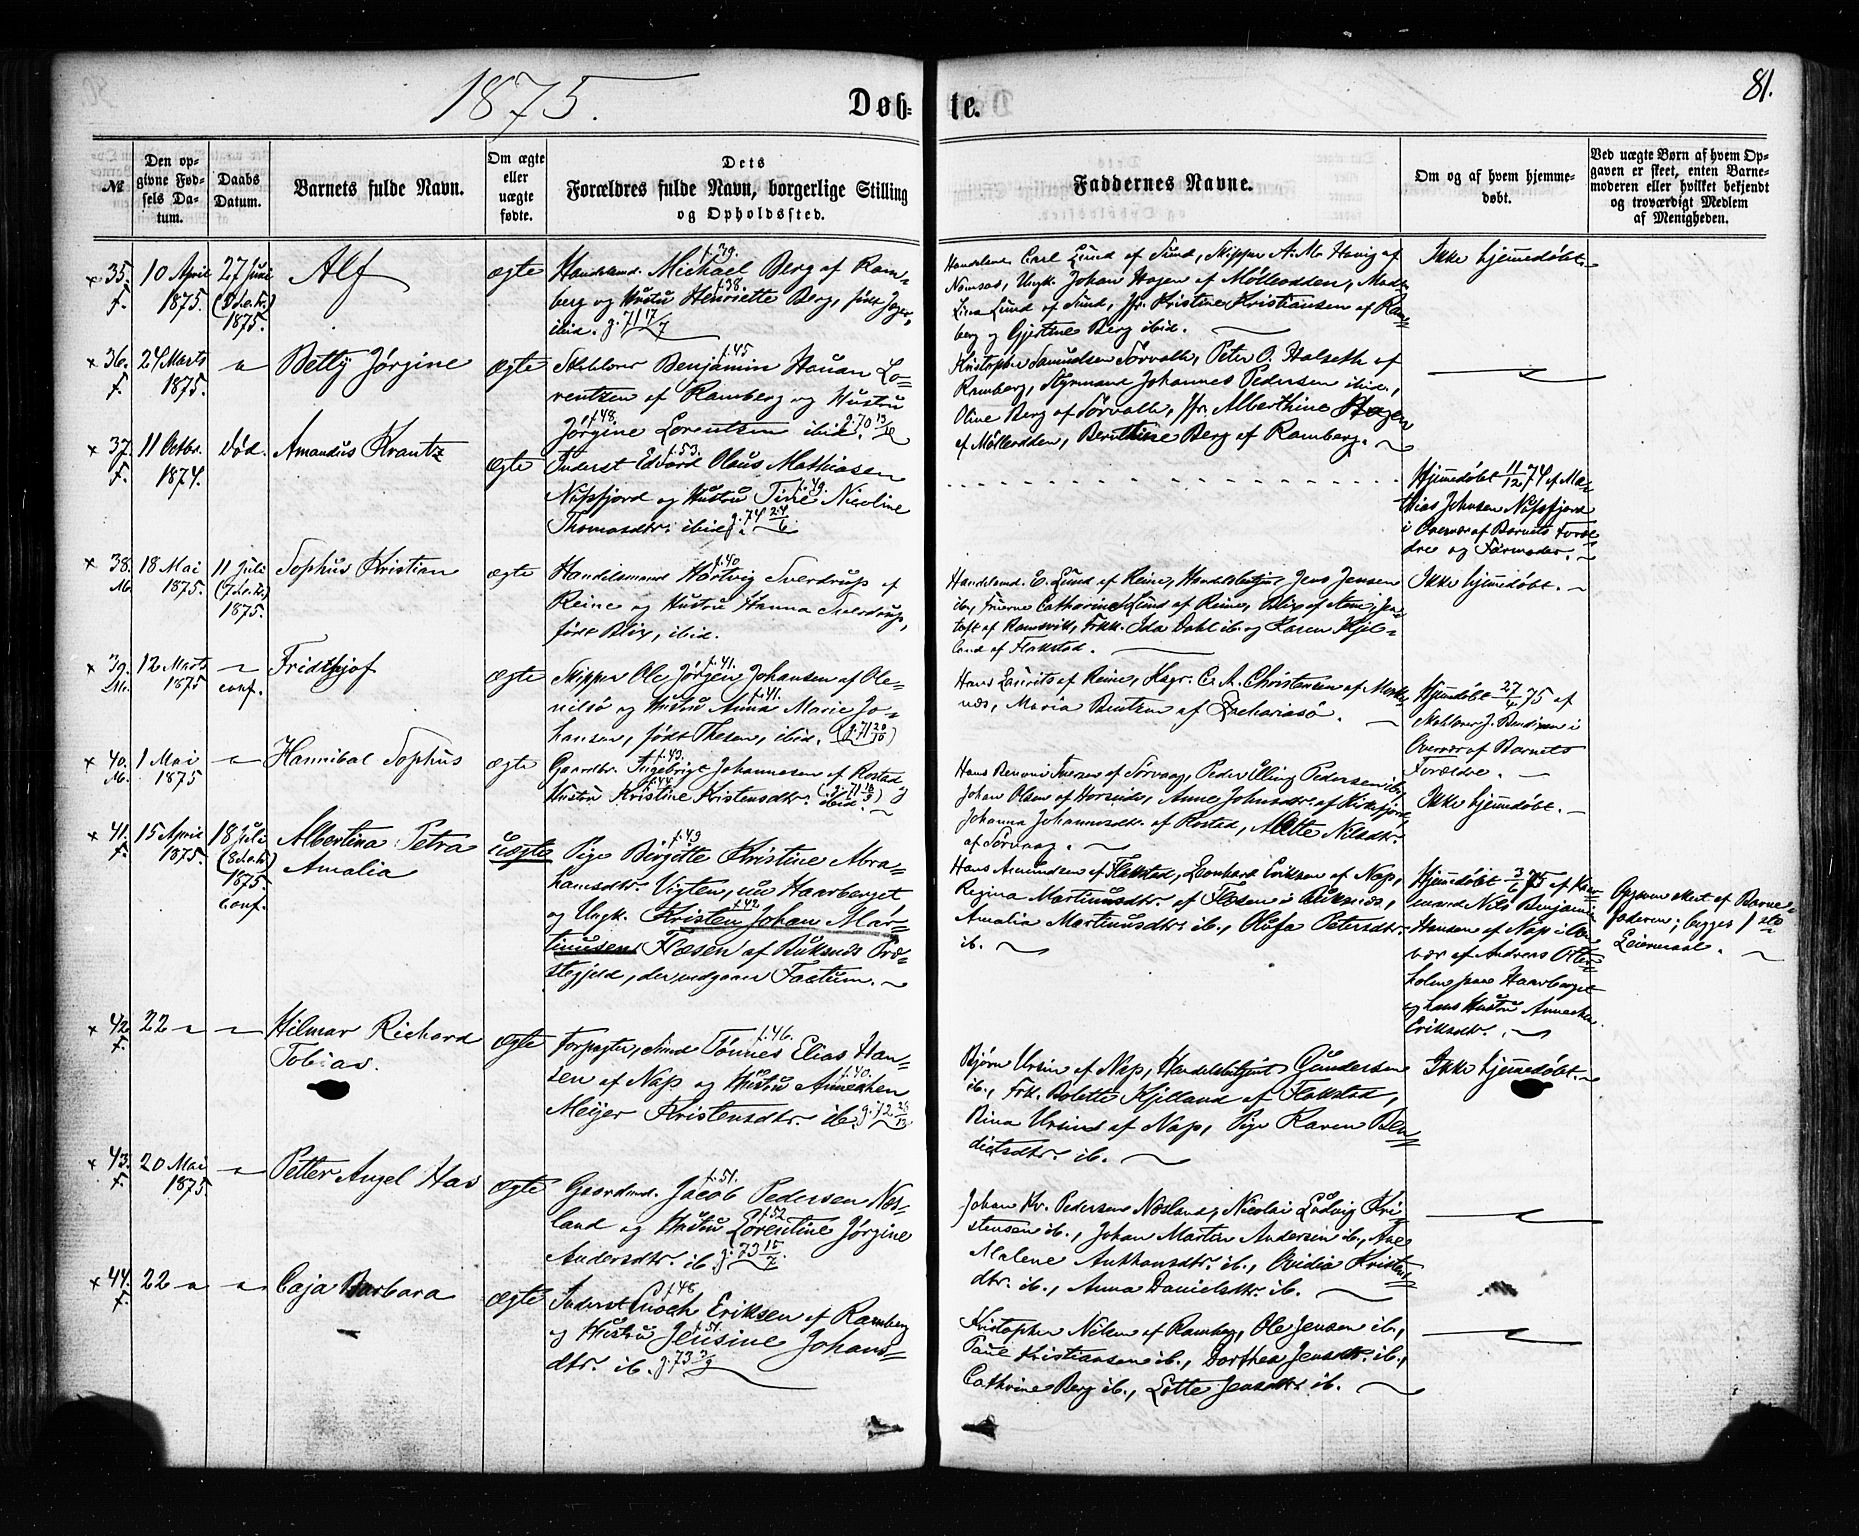 1875. Døb- te. 81.
№
Den op-
givne Fød-
sels Da-
tum.
Daabs
Datum.
Barnets fulde Navn.
Om ægte
eller
uægte
fødte.
Dets
Forældres fulde Navn, borgerlige Stilling
og Opholdssted.
Faddernes Navne.
Om og af hvem hjemme-
døbt.
Ved uægte Børn af hvem Op-
gaven er skeet, enten Barne-
moderen eller hvilket bekjendt
og troværdigt Medlem
af Menigheden.
× 35. f. 10 April 1875. 27 Juni 1875.
Alf
ægte
f. 39.
Handelsmd. Michael Berg af Ram-
f. 38.
berg og Hustru Henriette Berg, født Jæger,
ibid. g. 71 17/7
Handelsmd. Carl Lund af Sund, Skipper A. M. af
Ungk. Johan Hagen af Mølleodden, Mad.
Lina Lund af Sund, Jfr. Kristine Kristiansen af Ram-
berg og Gjertine Berg ibid.
Ikke hjemmedøbt.
× 36. f. 24 Marts 1875. "
Betty Jørgine
ægte
f. 45
Benjamin Hauan Lo-
rentzen af Ramberg og Hustru
f. 48. g. 70 13/10
Jørgine Lorentzen ibid.
Kristopher Samuelsen Sørvalh, Peter O. Halseth af
Ramberg, Styrmand Johannes Pedersen ibid.,
Oline Berg af Sørvalh, Jfr. Alberthine Hagen
af Mølleodden, Bernthine Berg af Ramberg.
× 37. f. 11 Octbr. 1874. Død.
Amandus Krantz
ægte
f. 53.
Inderst Edvard Olaus Mathiasen
f. 49.
Nufsfjord og Hustru Tine Nicoline
Thomasdtr. ibid. g. 74 24/6
Hjemmedøbt 11/12 74 af Ma-
thias Johnsen Nufsfjord
i Overvær af Barnets Foræl-
dre og Farmoder.
× 38. M. 18 Mai 1875. 11 Juli 1875.
Sophus Kristian
ægte
f. 40
Handelsmand Hartvig Sverdrup af
Reine og Hustru Hanna Sverdrup,
født Blix, ibid.
Handelsmd. E. Lund af Reine, Handelsbetjent Jens Jensen
ib., Fruerne Catharina Lund af Reine, Blix af
toft af Ramsvik, Frk. Ida Dahl ib. og Karen Kjel-
land af Flakstad.
Ikke hjemmedøbt.
× 39. M. 12 Marts 1875 " conf.
Fridthjof
ægte
f. 41.
Skipper Ole Jørgen Johansen af Ole-
f. 41.
nilsø og Hustru Anna Marie Jo-
hansen, født Thesen, ibid. (g. 71 20/10)
Hans Lauritz af Reine, C. A. Christensen af Moske-
næs, Maria Bentzen af Zachariasø.
Hjemmedøbt 27/4 75 af
J. Bendixen i
Overvær af Barnets
Forældre.
× 40. M. 1 Mai 1875 "
Hannibal Sophus
ægte
f. 43.
Gaardbr. Ingebrigt Johannesen af Rostad
f. 44
Hustru Kristine Kristensdtr. ibid.
Hans Benoni af Sørvaag, Peder Elling Pedersen ib.,
Johan Olsen af Horseid, Anne Johnsdtr. af Kirkefjord,
Johanna Johannesdtr. af Rostad, Mette Nilsdtr.
af Sørvaag.
Ikke hjemmedøbt.
× 41. f. 15 April 1875. 18 Juli 1875. conf.
Albertina Petra
Amalia
uægte
f. 49
Pige Birgitte Kristine Abra-
hamsdtr. Vigten, nu Haarberget
f. 42.
og Ungk. Kristen Johan Mar-
tinusen Fræsen af Buksnæs Præ-
stegjeld, der vedgaar Factum.
Hans Amundsen af Flakstad, Leonhard Eriksen af Nap,
Regina Martinusdtr. af i Buksnæs,
Amalia Martinusdtr. ib., Olufa Petersdtr.
ib.
Hjemmedøbt 3/6 75 af
Nils Benjamin
Hansen af Nap i Over-
vær af Andreas Otter-
holm paa Haarberget
og hans Hustru Annechen
Eriksdtr.
Opgaven skeet af Barne-
faderen; begges 1ste
Leiermaal.
× 42. f. 22 " "
Hilmar Richard
Tobias.
ægte
f. 46.
Forpagter, Tønnes Elias Han-
f. 40.
sen af Nap og Hustru Annechen
Meijer Kristensdtr. ib. g. 72
Bjørn Ursin af Nap, Handelsbetjent Gundersen
ib., Frk. Bolette Kjelland af Flakstad,
Rina Ursin af Nap, Pige Karen Ben-
dictsdtr. ib.
Ikke hjemmedøbt.
× 43. f. 20 Mai 1875 "
Petter Angel Has
ægte
f. 51.
Gaardmd. Jacob Pedersen Næs-
f. 52
land og Hustru Lorentine Jørgine
Andersdtr. ib. g. 73 15/7.
Johan Kr. Pedersen Næsland, Nicolai Ludvig Kri-
stensen ib., Johan Martin Andersen ib., Ane
Malene Anthonsdtr. ib., Ovidia Kristens-
dtr. ib., Anna Danielsdtr. ib.
× 44. f. 22 " "
Caja Barbara
ægte
f. 48
Inderst Enoch Eriksen af Ramberg
f. 51.
og Hustru Jensine Johans-
dtr. ib. g. 73 3/9
Kristopher Nilsen af Ramberg, Ole Jensen ib.,
Paul Kristiansen ib., Dorthea Jensdtr. ib.,
Cathrine Berg ib., Lotte Jensdtr. ib.